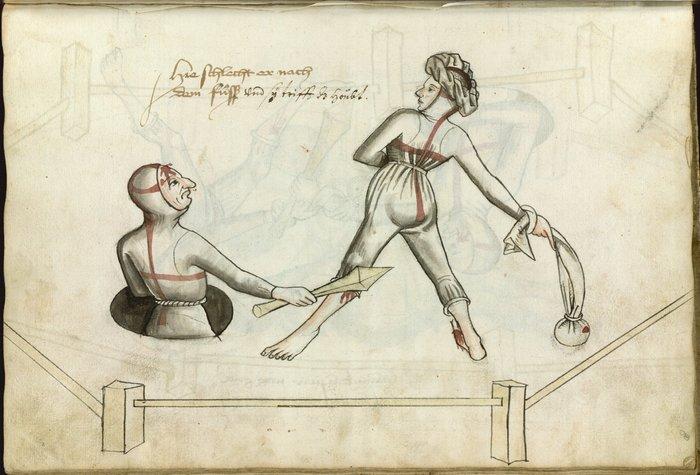 Hie schlecht er nach
dem fuͦß vnd sÿ triff dz hoͧbt.